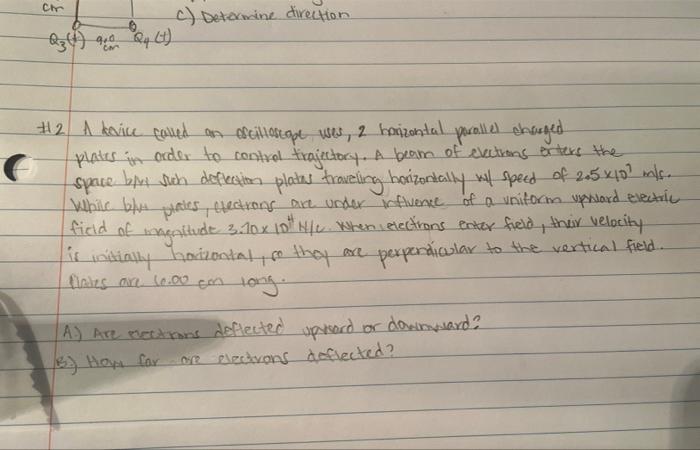 cm
C) Determine direction
Q3(+) 9.0 cm Q4 (+)
#2 A device called an oscilloscope uses, 2 horizontal parallel charged
plates in order to control trajectory. A beam of electrons enters the
space b/w such deflection plates traveling horizontally w/ speed of 2.5 x 10⁷ m/s.
While b/w plates, electrons are under influence of a uniform upward electric
field of magnitude 3.70 x 10⁴ N/C. When electrons enter field, their velocity
is initially horizontal, so they are perpendicular to the vertical field.
Plates are 6.00 cm long.
A.) Are electrons deflected upward or downward?
B) How far are electrons deflected?